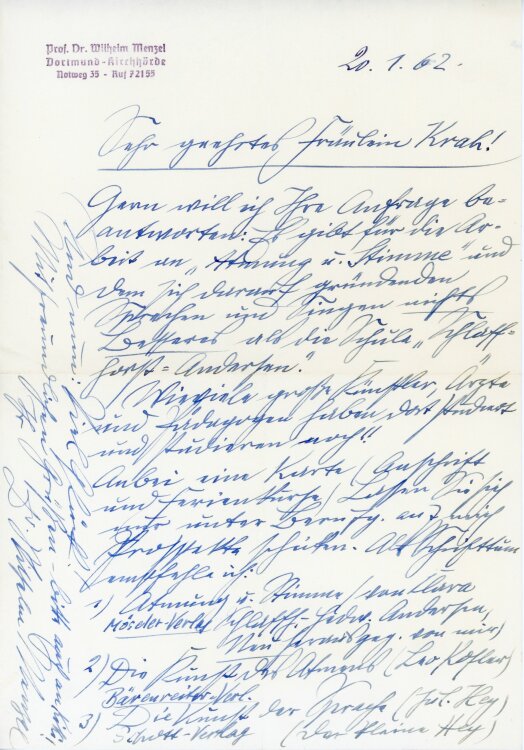 Prof. Dr. Wilhelm Menzel
Dortmund-Kirchhörde
Notweg 35 - Ruf 72155
20. 1. 62.
Sehr geehrtes Fräulein Krah!
Gern will ich Ihre Anfrage be-
antworten: Es gibt für die Ar-
beit an „Atmung u. Stimme" und
dem sich darauf gründenden
Sprechen und Singen nichts
Besseres als die Schule „Schlaff-
horst-Andersen".
(Wieviele große Künstler, Ärzte
und Pädagogen haben dort studiert
und studieren noch!!
Anbei eine Karte (Anschrift
und Ferienkurse) Lassen Sie sich
nur unter Berufg. auf mich
Prospekte schicken. Als Schrifttum
empfehle ich:
1) Atmung u. Stimme (von Klara
Möseler Verlag Schlaffh.-Hedw. Andersen,
Neu herausgeg. von mir)
2) Die Kunst des Atmens (Leo Kofler)
Bärenreiter-Verl.
3) Die Kunst der Sprache (Jul. Hey)
Schott-Verlag (Der kleine Hey)
Und nun: viel Glück!
Mit freundlichen Grüßen
Ihr Dr. Wilhelm Menzel